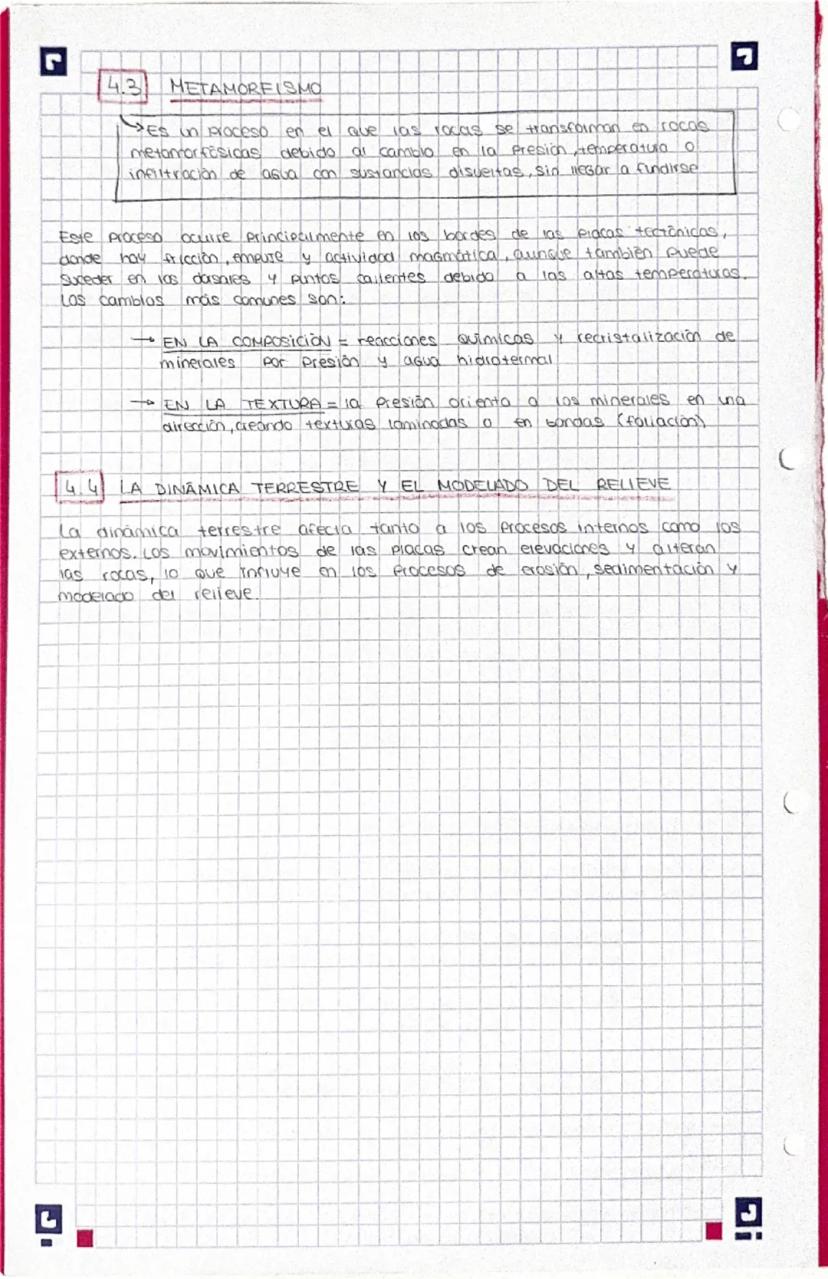 4.3 METAMORFISMO
Es un proceso en el que las rocas se transforman en rocas
metamorfósicas debido al cambio en la presión, temperatura o
infiltración de agua con sustancias disueltas, sin llegar a fundirse
Este proceso ocurre principalmente en los bordes de las placas tectónicas,
donde hay fricción, empuje y actividad magmática, aunque también puede
suceder en las dosales y puntos calientes debido a las altas temperaturas.
Los cambios más comunes son:
→ EN LA COMPOSICIÓN = reacciones químicas y recristalización de
minerales por presión y agua hidrotermal
→ EN LA TEXTURA = la presión orienta a los minerales en una
dirección, creando texturas laminadas o en bandas (foliación)
4.4 LA DINÁMICA TERRESTRE Y EL MODELADO DEL RELIEVE
La dinámica terrestre afecta tanto a los procesos internos como los
externos. Los movimientos de las placas crean elevaciones y alteran
las rocas, lo que influye en los procesos de erosión, sedimentación y
modelado del relieve.